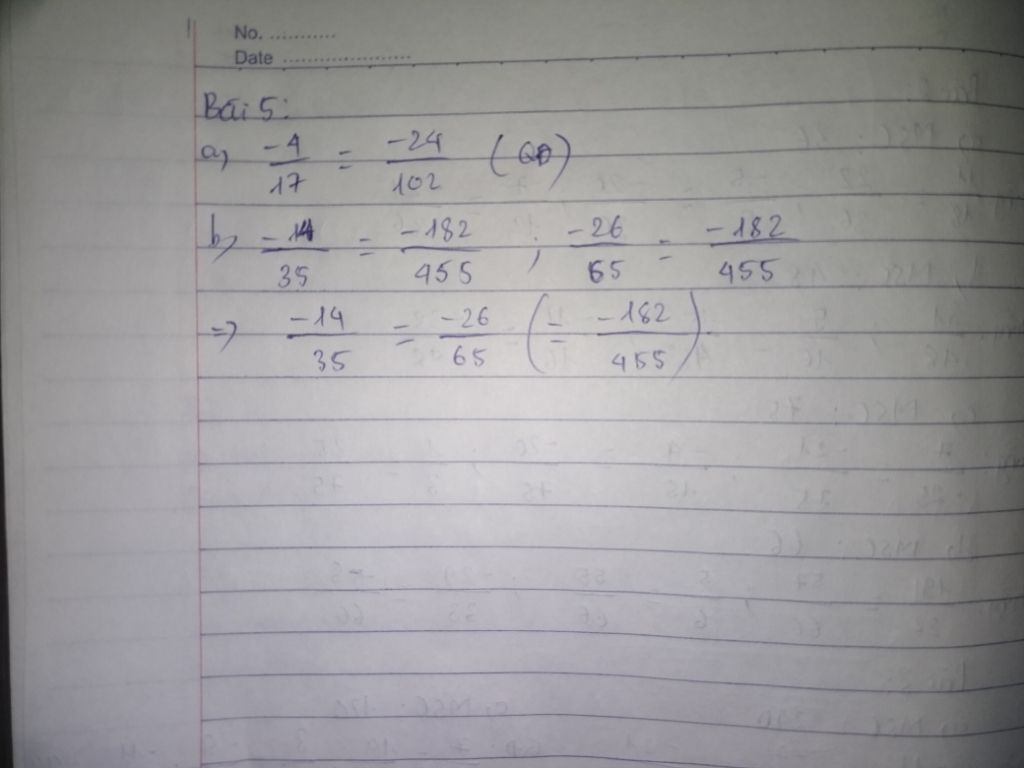 No. ............
Date ......................
Bài 5:
a, -4/17 = -24/102
b, -14/35 = -182/455 ; -26/65 = -182/455
=> -14/35 = -26/65 (= -182/455)